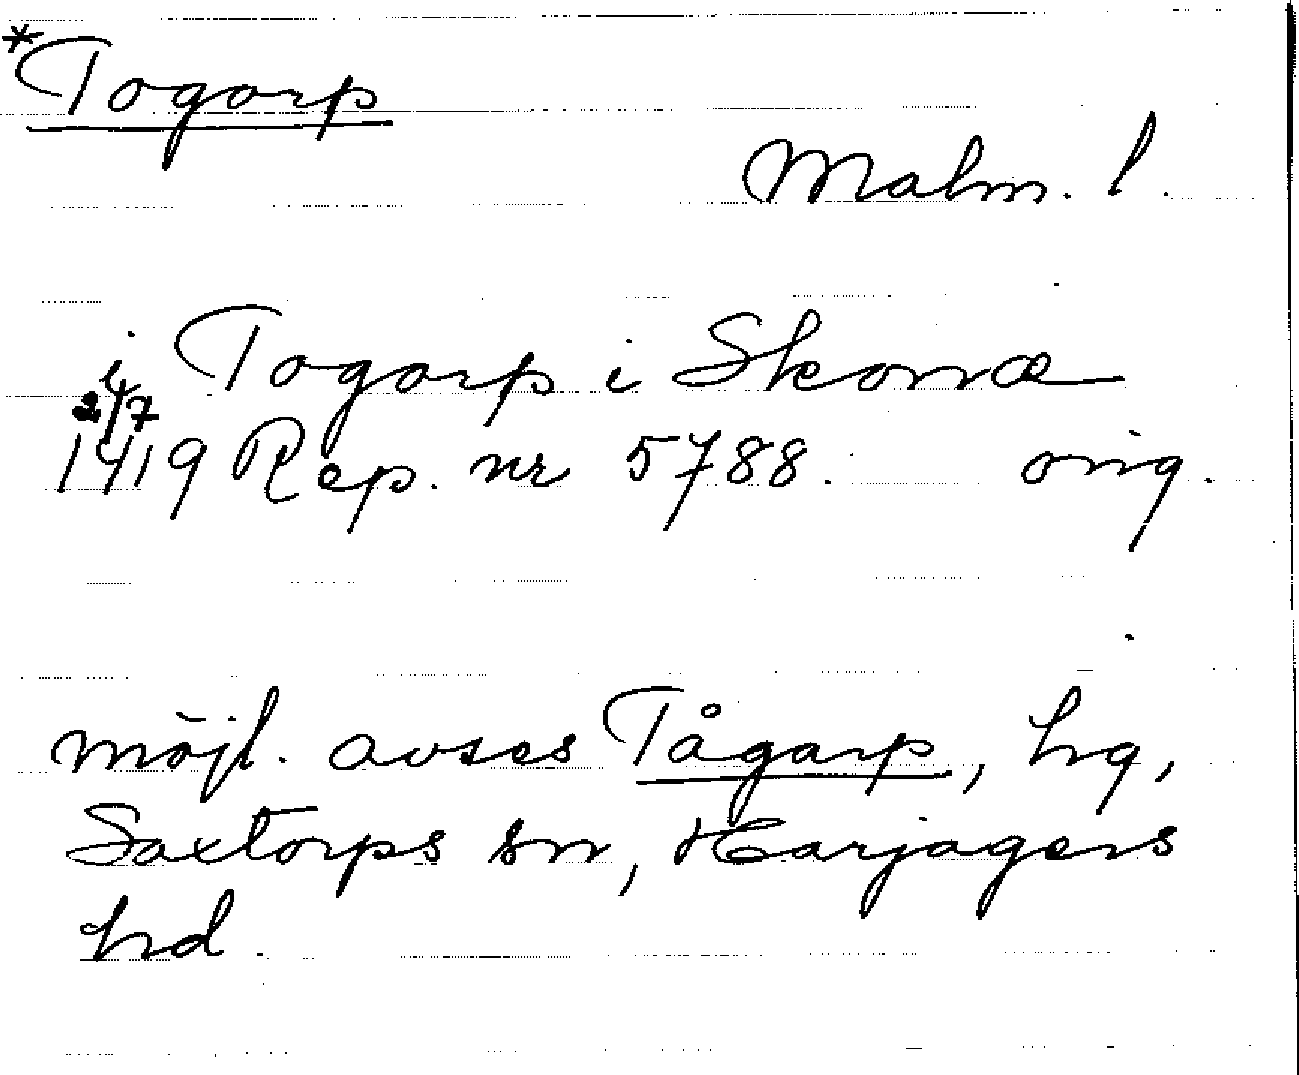 *Togarp
Malm. l.
i Togarp i Skonæ
2/7
1419 Rep. nr 5788. orig.
möjl. avses Tågarp, hg,
Saxtorps sn, Harjagers
hd.